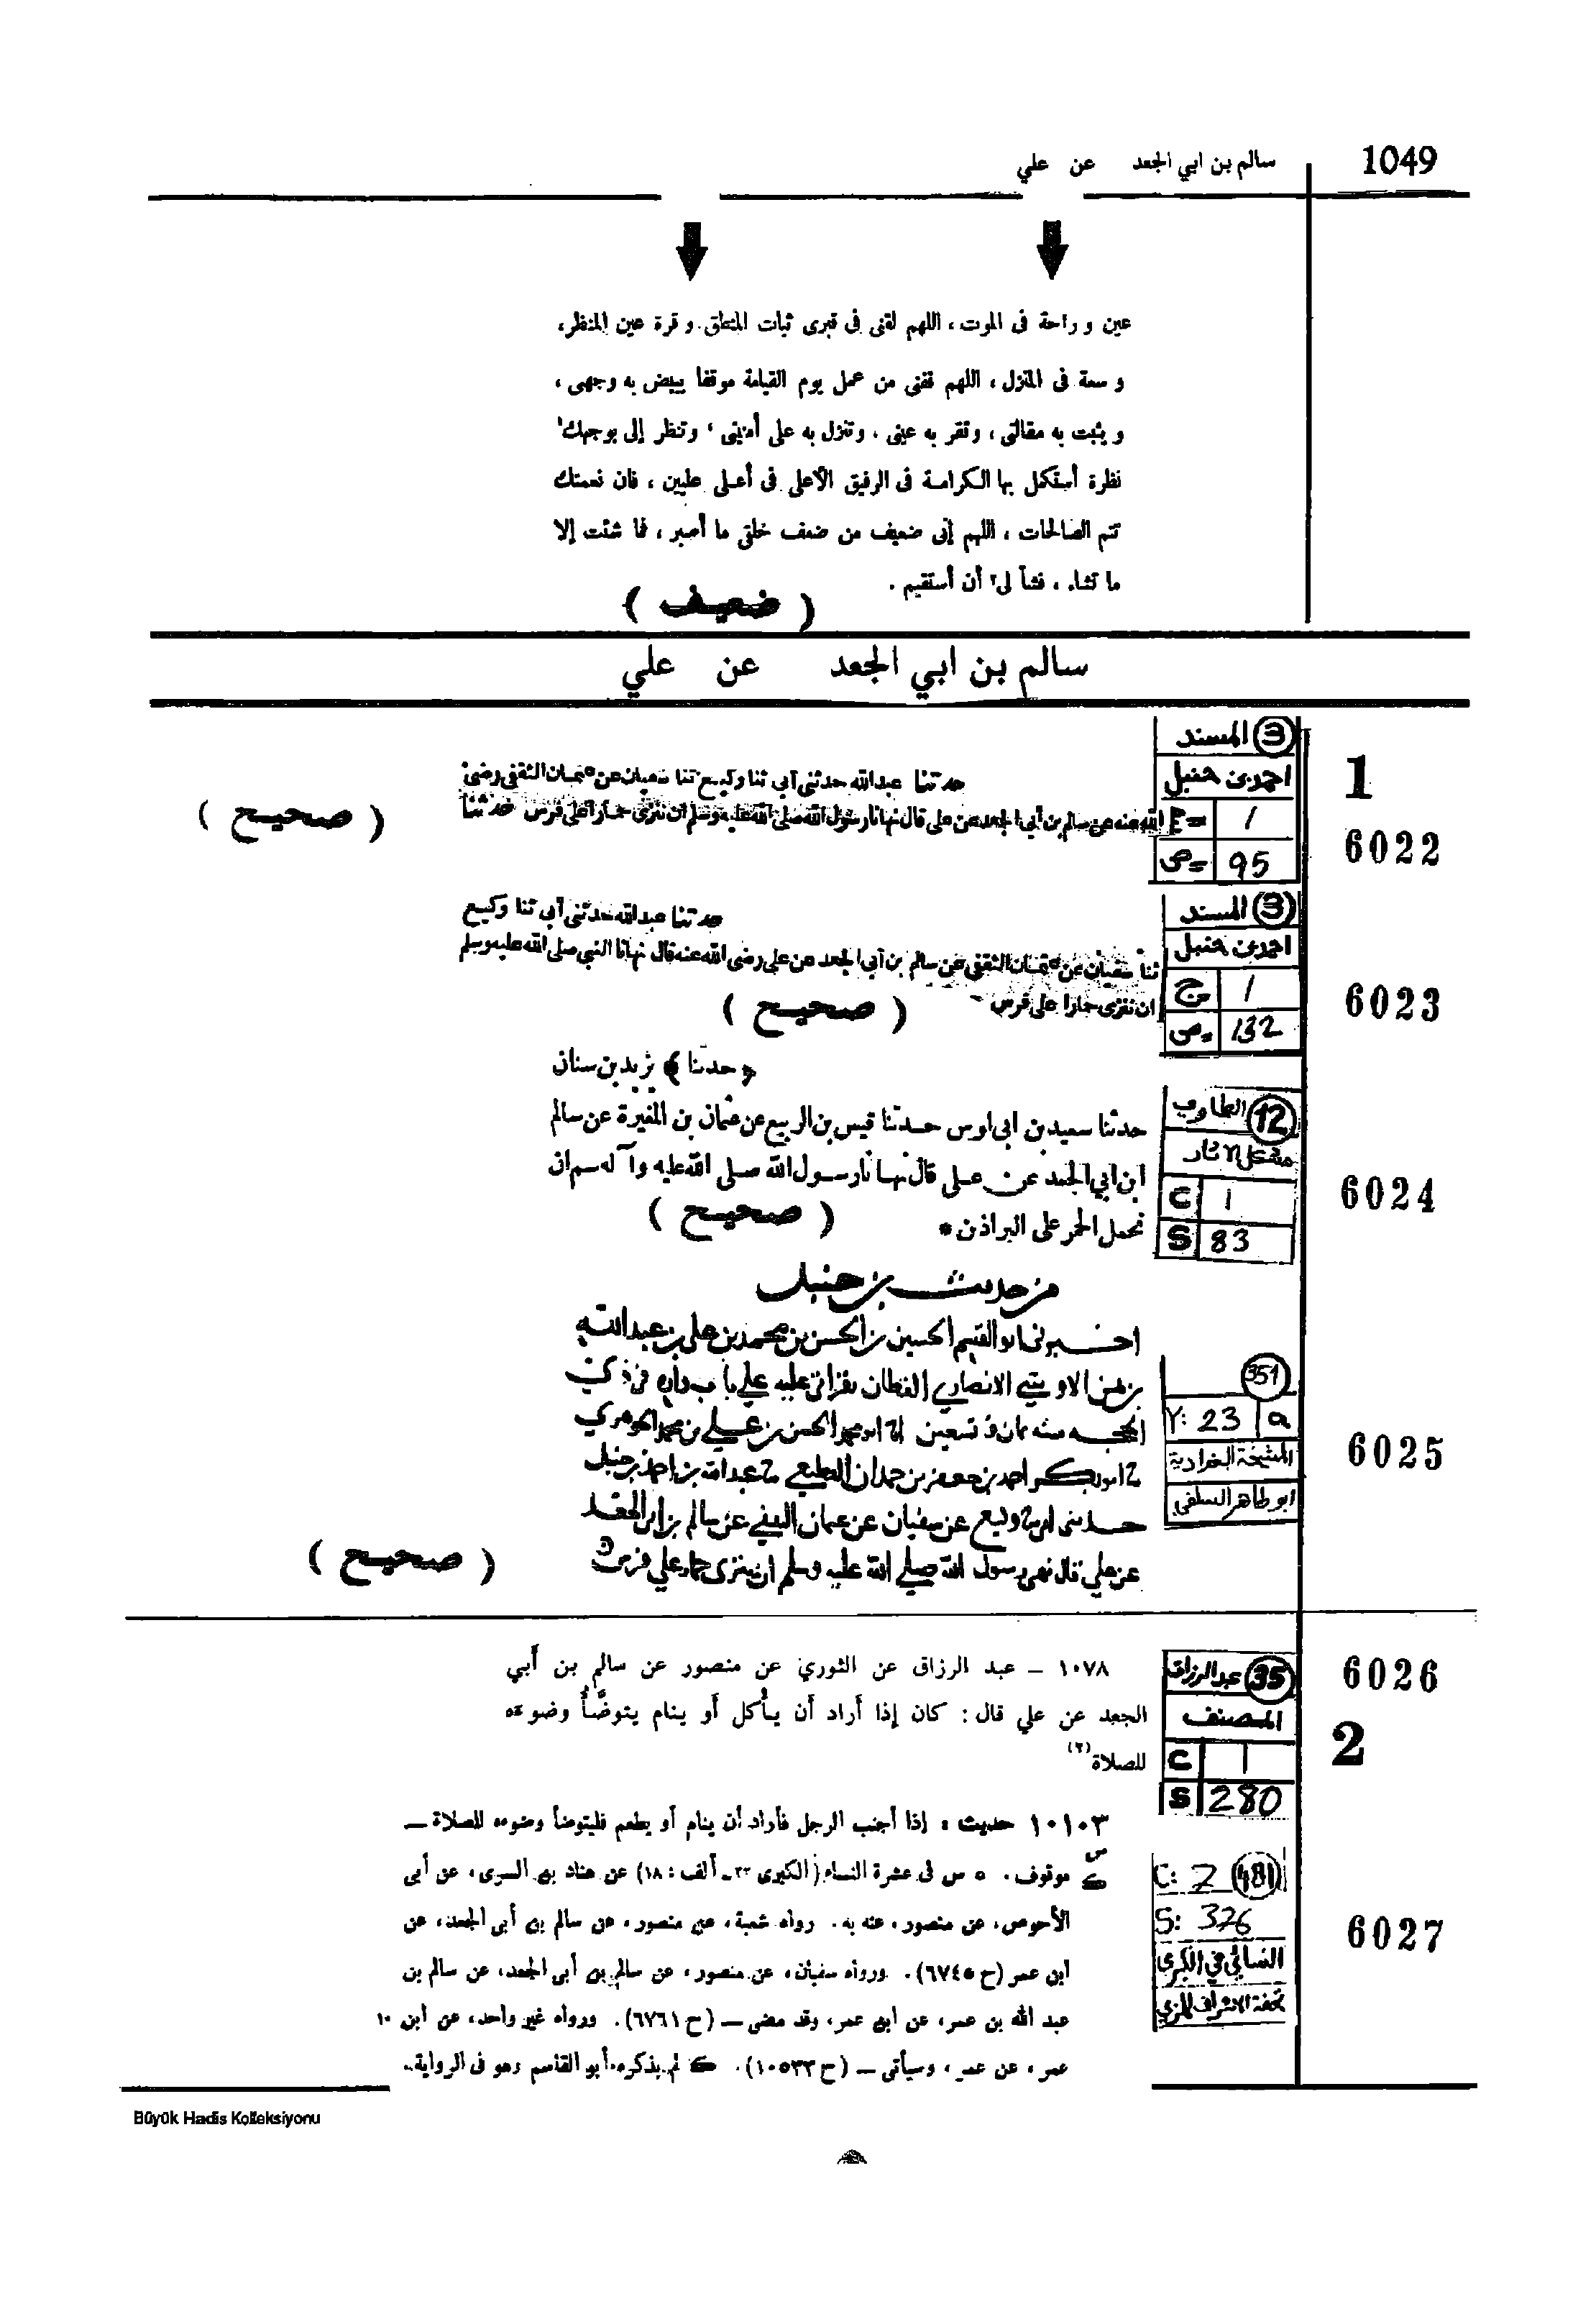 1049
سالم بن ابي الجعد عن علي
عين و راحة فى الموت ، اللهم لقنى فى قبرى ثبات المنطق و قرة عين المنظر،
و سعة فى المنزل ، اللهم قفنى من عمل يوم القيامة موقفا يبيض به وجهى ،
و يثبت به مقالتى ، وتقر به عينى ، وتنزل به على أمنيتى ، وتنظر إلى بوجهك
نظرة أستكمل بها الكرامة فى الرفيق الأعلى فى أعلى عليين ، فان نعمتك
تتم الصالحات ، اللهم إنى ضعيف من ضعف خلقى ما أصبر ، فما شئت إلا
ما تشاء ، فشأ لى٢ أن أستقيم .
( ضعيف )
سالم بن ابي الجعد عن علي
1
6022
3 المسند
احمد بن حنبل
1
ص= 95
حدثنا عبدالله حدثنى أبى ثنا وكيع ثنا سفيان عن عثمان الثقفى رضى
الله عنه عن سالم بن أبى الجعد عن على قال نهانا رسول الله صلى الله عليه وسلم أن ننزى حمارا على فرس حدثنا
( صحيح )
6023
3 المسند
احمد بن حنبل
ج 1
ص= 132
حدثنا عبدالله حدثنى أبى ثنا وكيع
ثنا سفيان عن عثمان الثقفى عن سالم بن أبى الجعد عن على رضى الله عنه قال نهانا النبى صلى الله عليه وسلم
ان ننزى حمارا على فرس
( صحيح )
6024
12 الطاوي
مشكل الاثار
C 1
S 83
﴿ حدثنا ﴾ يزيد بن سنان
حدثنا سعيد بن ابى اوس حدثنا قيس بن الربيع عن عثمان بن المغيرة عن سالم
ابن ابي الجعد عن على قال نهانا رسول الله صلى الله عليه وآله سم ان
نحمل الحمر على البراذن *
( صحيح )
6025
351
Y: 23 a
المشيخة البغدادية
ابو طاهر السلفي
من حديث بن حنبل
القسم الحسين بن الحسن بن محمد بن علي بن عبدالله
الانصاري القطان
الحسن بن علي بن محمد الجوهري
احمد بن جعفر بن حمدان القطيعي عبدالله بن احمد بن حنبل
حدثنى ابي وكيع عن سفيان عن عثمان الثقفي عن سالم بن ابي الجعد
عن علي قال نهى رسول الله صلى الله عليه وسلم ان ينزى حمار على فرس
( صحيح )
6026
2
35 عبد الرزاق
المصنف
C 1
S 280
١٠٧٨ – عبد الرزاق عن الثوري عن منصور عن سالم بن أبي
الجعد عن علي قال : كان إذا أراد أن يأكل أو ينام يتوضَّأُ وضوءه
للصلاة(٢)
6027
C: 7 481
S: 326
النسائي في الكبرى
تحفة الاشراف للمزي
١٠١٠٣ حديث : إذا أجنب الرجل فأراد أن ينام أو يطعم فليتوضأ وضوءه للصلاة –
س
ك موقوف . ٥ س فى عشرة النساء (الكبرى ٣٣ ـ ألف : ١٨) عن هناد بن السرى ، عن أبى
الأحوص ، عن منصور ، عنه به . رواه شعبة ، عن منصور ، عن سالم بن أبى الجعد ، عن
ابن عمر (ح ٦٧٤٥) . ورواه سفيان ، عن منصور ، عن سالم بن أبى الجعد ، عن سالم بن
عبد الله بن عمر ، عن ابن عمر ، وقد مضى – (ح ٦٧٦١) . ورواه غير واحد ، عن ابن ١٠
عمر ، عن عمر ، وسيأتى – (ح ١٠٥٣٣) . ك لم يذكره أبو القاسم وهو فى الرواية .
Büyük Hadis Kolleksiyonu